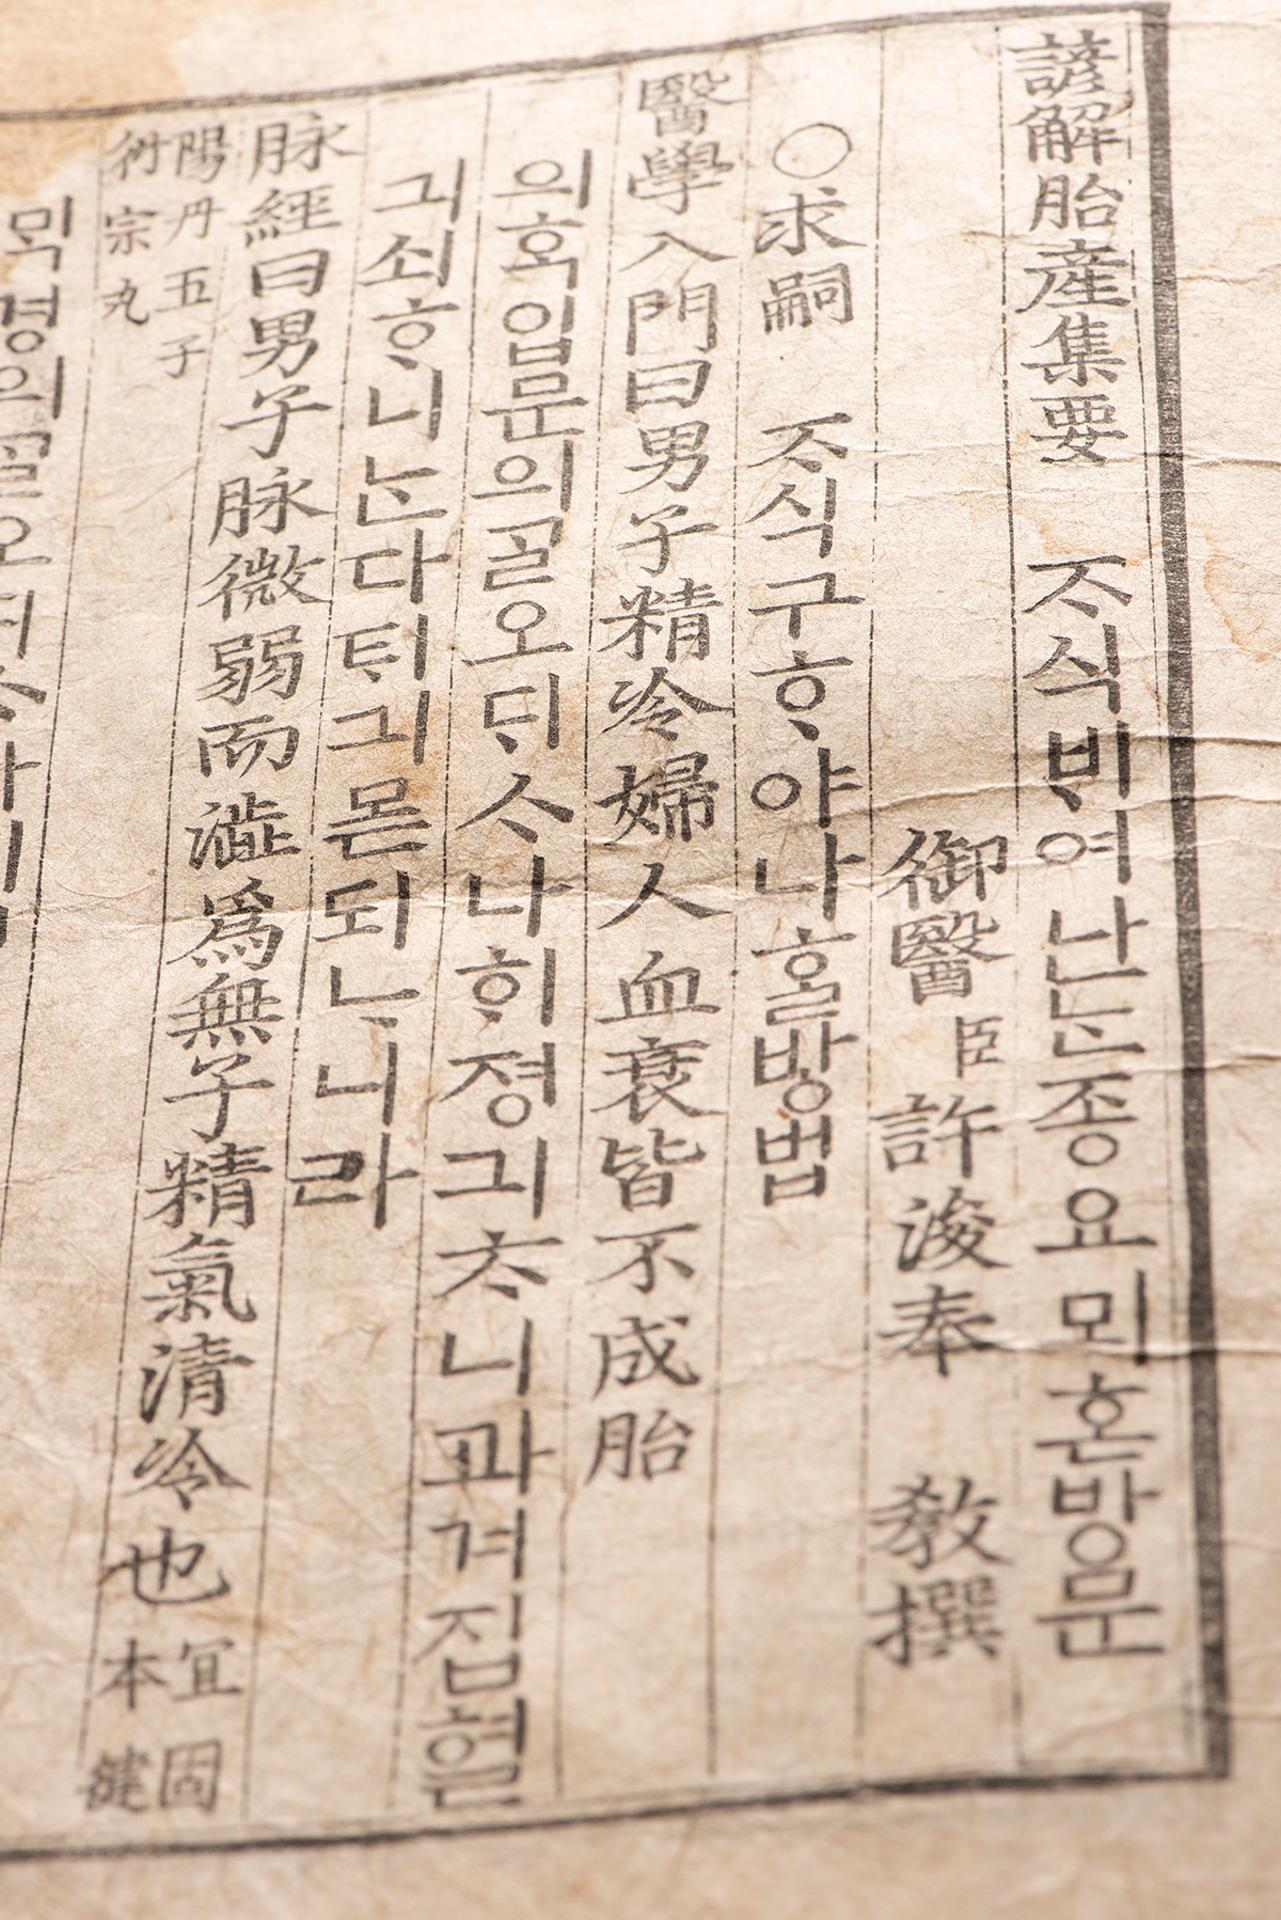 諺解胎産集要 ᄌᆞ식ᄇᆡ여난ᄂᆞᆫ종요뫼혼방문
御醫臣許浚奉 敎撰
○求嗣 ᄌᆞ식구ᄒᆞ야나홀방법
醫學入門曰男子精冷婦人血衰皆不成胎
의혹입문의골오ᄃᆡᄉᆞ나ᄒᆡ졍긔ᄎᆞ니과겨집혈
긔쇠ᄒᆞ니ᄂᆞᆫ다ᄐᆡ긔몯되ᄂᆞ니라
脉經曰男子脉微弱而澁爲無子精氣清冷也宜固本健
陽丹五子衍宗丸
ᄆᆡᆨ경의골오ᄃᆡᄉᆞ나